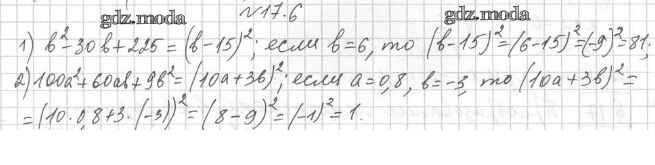 №17.6
gdz.moda gdz.moda
1) b²-30b+225=(b-15)²; если b=6, то (b-15)²=(6-15)²=(-9)²=81;
2) 100a²+60ab+9b²=(10a+3b)²; если a=0,8, b=-3, то (10a+3b)²=
=(10·0,8+3·(-3))²=(8-9)²=(-1)²=1.